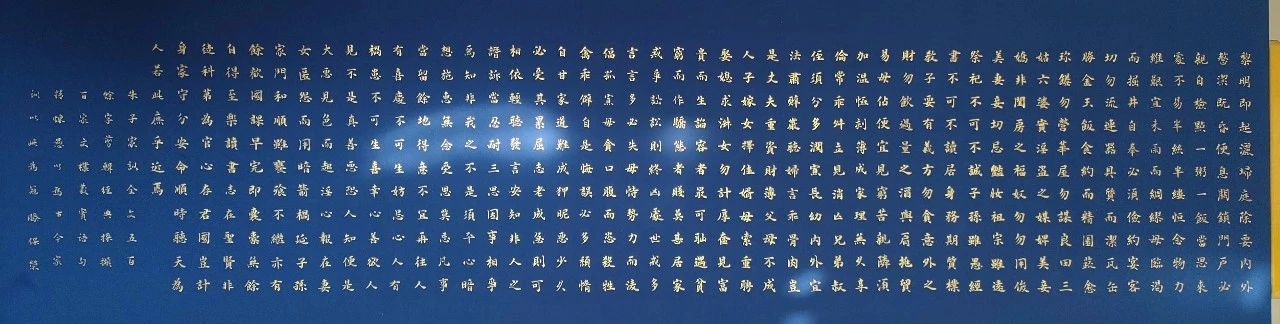 黎明即起灑掃庭除要內外
整潔既昏便息關鎖門戶必
親自檢點一粥一飯當思來
處不易半絲半縷恒念物力
維艱宜未雨而綢繆毋臨渴
而掘井自奉必須儉約宴客
切勿流連器具質而潔瓦缶
勝金玉飯食約而精園蔬愈
珍饈勿營華屋勿謀良田三
姑六婆實淫盜之媒婢美妾
嬌非閨房之福奴僕勿用俊
美妻妾切忌豔妝祖宗雖遠
祭祀不可不誠子孫雖愚經
書不可不讀居身務期質樸
教子要有義方勿貪意外之
財勿飲過量之酒與肩挑貿
易毋佔便宜見窮苦親隣須
加溫恤刻薄成家理無久享
倫常乖舛立見消亡兄弟叔
侄須分多潤寡長幼內外宜
法肅辭嚴聽婦言乖骨肉豈
是丈夫重資財薄父母不成
人子嫁女擇佳婿毋索重聘
娶媳求淑女勿計厚奩見富
貴而生諂容者最可恥遇貧
窮而作驕態者賤莫甚居家
戒爭訟訟則終凶處世戒多
言言多必失毋恃勢力而凌
偪孤寡毋貪口腹而恣殺牲
禽乖僻自是悔誤必多頹惰
自甘家道難成狎昵惡少久
必受其累屈志老成急則可
相依輕聽發言安知非人之
譖訴當忍耐三思因事相爭
焉知非我之不是須平心暗
想施惠無念受恩莫忘凡事
當留餘地得意不宜再往人
有喜慶不可生妒忌心人有
禍患不可生喜幸心善欲人
見不是真善惡恐人知便是
大惡見色而起淫心報在妻
女匿怨而用暗箭禍延子孫
家門和順雖饔飧不繼亦有
餘歡國課早完即囊橐無餘
自得至樂讀書志在聖賢非
徒科第為官心存君國豈計
身家守分安命順時聽天為
人若此庶乎近焉
朱子家訓全文五百
餘字
百家之
以為古今家
訓以此為冠